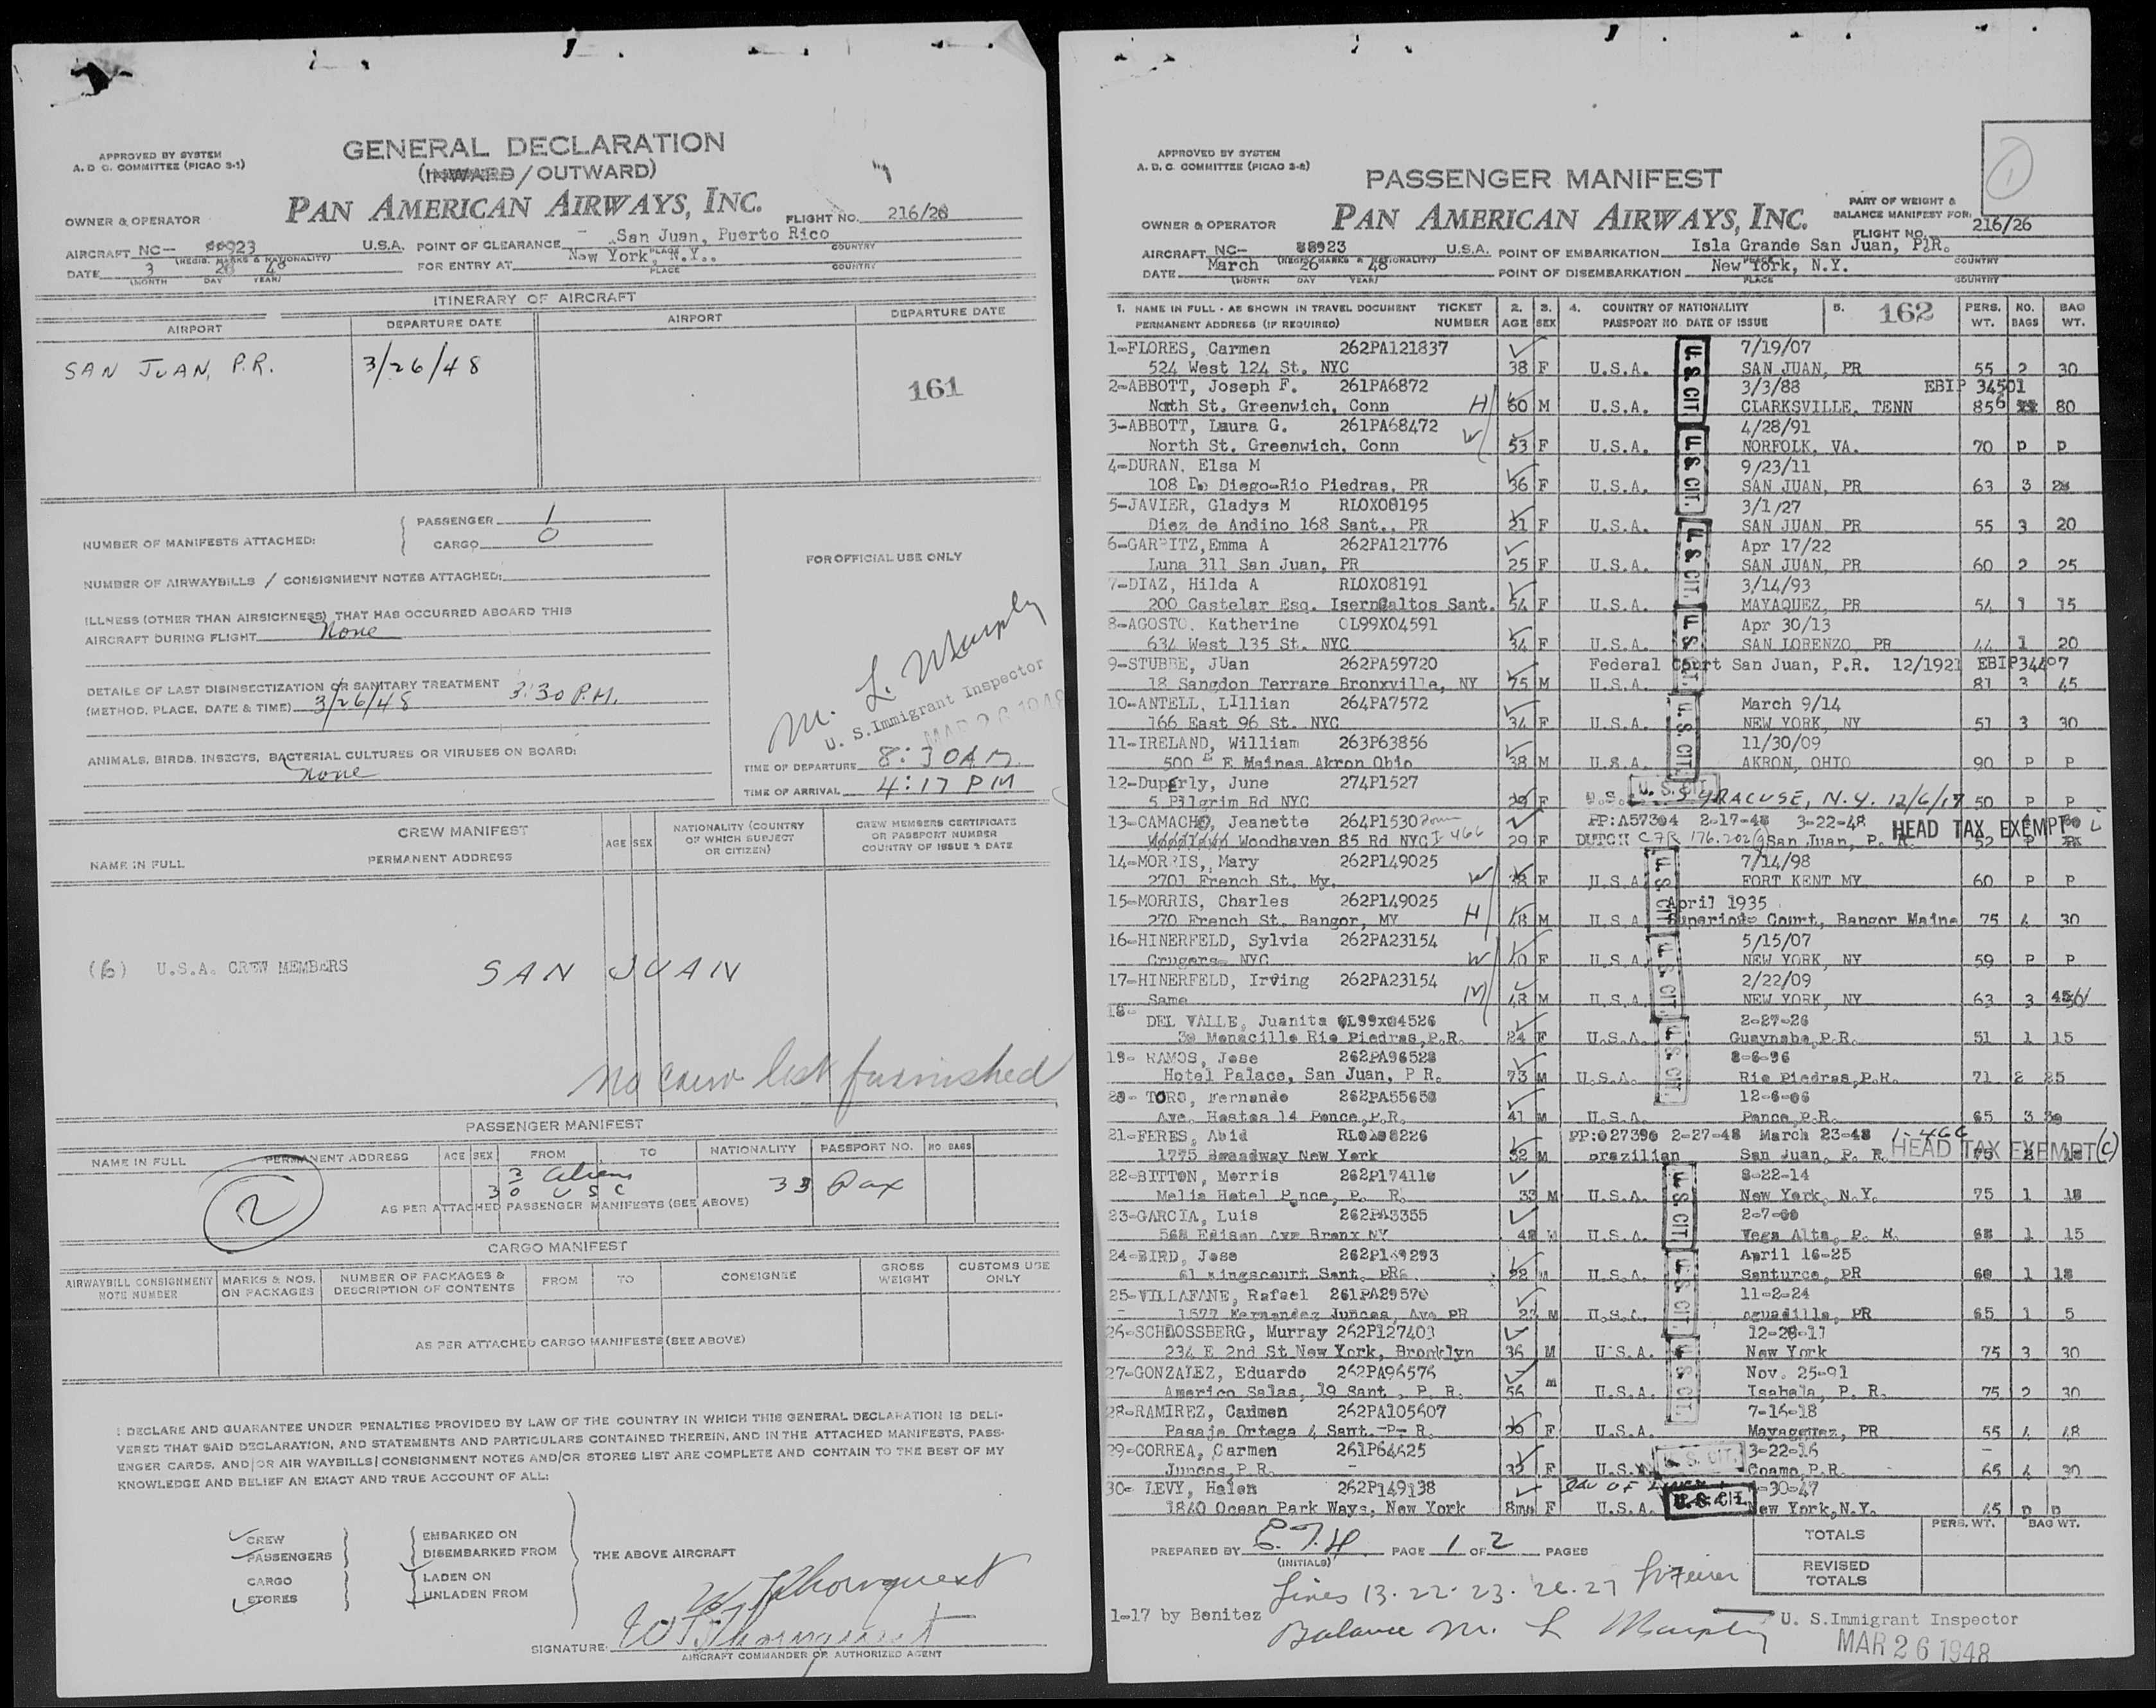 APPROVED BY SYSTEM
A. D. C. COMMITTEE (PICAO S-1)
GENERAL DECLARATION
(INWARD/OUTWARD)
PAN AMERICAN AIRWAYS, INC.
OWNER & OPERATOR
FLIGHT NO. 216/26
AIRCRAFT NC- 88923 U.S.A. POINT OF CLEARANCE San Juan, Puerto Rico
(REGIS. MARKS & NATIONALITY) PLACE COUNTRY
DATE 3 26 48 FOR ENTRY AT New York, N.Y..
(MONTH DAY YEAR) PLACE COUNTRY
ITINERARY OF AIRCRAFT
AIRPORT DEPARTURE DATE AIRPORT DEPARTURE DATE
SAN JUAN, P.R. 3/26/48
161
NUMBER OF MANIFESTS ATTACHED: PASSENGER 1
CARGO 0
NUMBER OF AIRWAYBILLS / CONSIGNMENT NOTES ATTACHED:
ILLNESS (OTHER THAN AIRSICKNESS) THAT HAS OCCURRED ABOARD THIS
AIRCRAFT DURING FLIGHT None
DETAILS OF LAST DISINSECTIZATION OR SANITARY TREATMENT 3:30 P.M.
(METHOD, PLACE, DATE & TIME) 3/26/48
ANIMALS, BIRDS, INSECTS, BACTERIAL CULTURES OR VIRUSES ON BOARD:
none
FOR OFFICIAL USE ONLY
M. L. Murphy
U. S. Immigrant Inspector
MAR 26 1948
TIME OF DEPARTURE 8:30 AM
TIME OF ARRIVAL 4:17 PM
CREW MANIFEST
NAME IN FULL PERMANENT ADDRESS AGE SEX NATIONALITY (COUNTRY OF WHICH SUBJECT OR CITIZEN) CREW MEMBERS CERTIFICATE OR PASSPORT NUMBER COUNTRY OF ISSUE & DATE
(6) U.S.A. CREW MEMBERS SAN JUAN
No crew list furnished
PASSENGER MANIFEST
NAME IN FULL PERMANENT ADDRESS AGE SEX FROM TO NATIONALITY PASSPORT NO. NO BAGS
3 Aliens
30 USC 33 Pax
2
AS PER ATTACHED PASSENGER MANIFESTS (SEE ABOVE)
CARGO MANIFEST
AIRWAYBILL CONSIGNMENT NOTE NUMBER MARKS & NOS. ON PACKAGES NUMBER OF PACKAGES & DESCRIPTION OF CONTENTS FROM TO CONSIGNEE GROSS WEIGHT CUSTOMS USE ONLY
AS PER ATTACHED CARGO MANIFESTS (SEE ABOVE)
I DECLARE AND GUARANTEE UNDER PENALTIES PROVIDED BY LAW OF THE COUNTRY IN WHICH THIS GENERAL DECLARATION IS DELI-
VERED THAT SAID DECLARATION, AND STATEMENTS AND PARTICULARS CONTAINED THEREIN, AND IN THE ATTACHED MANIFESTS, PASS-
ENGER CARDS, AND/OR AIR WAYBILLS/CONSIGNMENT NOTES AND/OR STORES LIST ARE COMPLETE AND CONTAIN TO THE BEST OF MY
KNOWLEDGE AND BELIEF AN EXACT AND TRUE ACCOUNT OF ALL:
CREW EMBARKED ON
PASSENGERS DISEMBARKED FROM THE ABOVE AIRCRAFT
CARGO LADEN ON
STORES UNLADEN FROM
SIGNATURE
AIRCRAFT COMMANDER OR AUTHORIZED AGENT
APPROVED BY SYSTEM
A. D. C. COMMITTEE (PICAO S-2)
PASSENGER MANIFEST
1
OWNER & OPERATOR PAN AMERICAN AIRWAYS, INC.
PART OF WEIGHT &
BALANCE MANIFEST FOR:
FLIGHT NO. 216/26
AIRCRAFT NC- 88923 U.S.A. POINT OF EMBARKATION Isla Grande San Juan, P.R.
(REGIS MARKS & NATIONALITY) PLACE COUNTRY
DATE March 26 48 POINT OF DISEMBARKATION New York, N.Y.
(MONTH DAY YEAR) PLACE COUNTRY
1. NAME IN FULL - AS SHOWN IN TRAVEL DOCUMENT TICKET 2. 3. 4. COUNTRY OF NATIONALITY 5. 162 PERS. NO. BAG
PERMANENT ADDRESS (IF REQUIRED) NUMBER AGE SEX PASSPORT NO DATE OF ISSUE WT. BAGS WT.
1-FLORES, Carmen 262PA121837 7/19/07
524 West 124 St. NYC 38 F U.S.A. SAN JUAN, PR 55 2 30
2-ABBOTT, Joseph F. 261PA6872 3/3/88 EBIP 34501
North St. Greenwich, Conn H 60 M U.S.A. CLARKSVILLE, TENN 85 6 80
3-ABBOTT, Laura G. 261PA68472 4/28/91
North St. Greenwich, Conn W 53 F U.S.A. NORFOLK, VA. 70 P P
4-DURAN, Elsa M 9/23/11
108 De Diego-Rio Piedras, PR 36 F U.S.A. SAN JUAN, PR 63 3 28
5-JAVIER, Gladys M RLOX08195 3/1/27
Diez de Andino 168 Sant., PR 21 F U.S.A. SAN JUAN PR 55 3 20
6-GARRITZ, Emma A 262PA121776 Apr 17/22
Luna 311 San Juan, PR 25 F U.S.A. SAN JUAN, PR 60 2 25
7-DIAZ, Hilda A RLOX08191 3/14/93
200 Castelar Esq. Isern Caltos Sant. 54 F U.S.A. MAYAQUEZ, PR 54 1 15
8-AGOSTO, Katherine OL99X04591 Apr 30/13
634 West 135 St. NYC 34 F U.S.A. SAN LORENZO, PR 44 1 20
9-STUBBE, JUan 262PA59720 Federal Court San Juan, P.R. 12/1921 EBIP34407
18 Sangdon Terrare Bronxville, NY 75 M U.S.A. 81 3 45
10-ANTELL, LIllian 264PA7572 March 9/14
166 East 96 St. NYC 34 F U.S.A. NEW YORK, NY 51 3 30
11-IRELAND, William 263P63856 11/30/09
500 E Maines Akron Ohio 38 M U.S.A. AKRON, OHIO 90 P P
12-Duperly, June 274P1527
5 Pilgrim Rd NYC 29 F U.S. SYRACUSE, N.Y. 12/6/17 50 P P
13-CAMACHO, Jeanette 264P1530 Form I-466 PP:A57304 2-17-48 3-22-48 HEAD TAX EXEMPT
Woodlawn Woodhaven 85 Rd NYC 29 F DUTCH CFR 176.202(G) San Juan, P. R. 52 P
14-MORRIS, Mary 262P149025 7/14/98
2701 French St. My. W 38 F U.S.A. FORT KENT MY 60 P P
15-MORRIS, Charles 262P149025 April 1935
270 French St. Bangor, MY H 48 M U.S.A. Superior Court, Bangor Maine 75 4 30
16-HINERFELD, Sylvia 262PA23154 5/15/07
Crugers- NYC W 40 F U.S.A. NEW YORK, NY 59 P P
17-HINERFELD, Irving 262PA23154 2/22/09
Same 43 M U.S.A. NEW YORK, NY 63 3 45
18- DEL VALLE, Juanita OL99X04526 2-27-26
30 Monacillo Rio Piedras, P.R. 24 F U.S.A. Guaynabo, P.R. 51 1 15
19- RAMOS, Jose 262PA96528 8-6-96
Hotel Palace, San Juan, P R. 73 M U.S.A. Rio Piedras, P.R. 71 2 25
20- TORO, Fernando 262PA55658 12-6-06
Ave. Hostos 14 Ponce, P.R. 41 M U.S.A. Ponce, P.R. 65 3 30
21-FERES, Abid RLOA08226 PP:027390 2-27-48 March 23-48 I-466
1775 Broadway New York 32 M Brazilian San Juan, P. R. HEAD TAX EXEMPT (C)
22-BITTON, Morris 262P174110 8-22-14
Melia Hotel Ponce, P. R. 33 M U.S.A. New York, N.Y. 75 1 18
23-GARCIA, Luis 262PA3355 2-7-00
568 Edison Ave Bronx NY 48 M U.S.A. Vega Alta, P. R. 68 1 15
24-BIRD, Jose 262P149293 April 16-25
61 Kingscourt Sant. PR 22 M U.S.A. Santurce, PR 60 1 18
25-VILLAFANE, Rafael 261PA29570 11-2-24
1577 Fernandez Juncos, Ave PR 23 M U.S.A. Aguadilla, PR 65 1 5
26-SCHLOSSBERG, Murray 262P127403 12-28-11
234 E 2nd St New York, Brooklyn 36 M U.S.A. New York 75 3 30
27-GONZALEZ, Eduardo 262PA96576 Nov. 25-91
Americo Salas, 19 Sant., P. R. 56 m U.S.A. Isabela, P. R. 75 2 30
28-RAMIREZ, Carmen 262PA105607 7-16-18
Pasaje Ortega 4 Sant. P- R. 29 F U.S.A. Mayaguez, PR 55 4 48
29-CORREA, Carmen 261P64625 3-22-16
Juncos, P.R. 32 F U.S.A. U. S. CIT. Coamo, P.R. 65 4 30
30- LEVY, Helen 262P149138 -30-47
1840 Ocean Park Ways, New York 8mo F U.S.A. U. S. CIT. New York, N.Y. 45 P P
PREPARED BY E.T.H (INITIALS) PAGE 1 OF 2 PAGES
TOTALS PERS. WT. BAG WT.
REVISED TOTALS
Lines 13-22-23-26-27
1-17 by Benitez
Balance M. L Murphy
U. S. Immigrant Inspector
MAR 26 1948